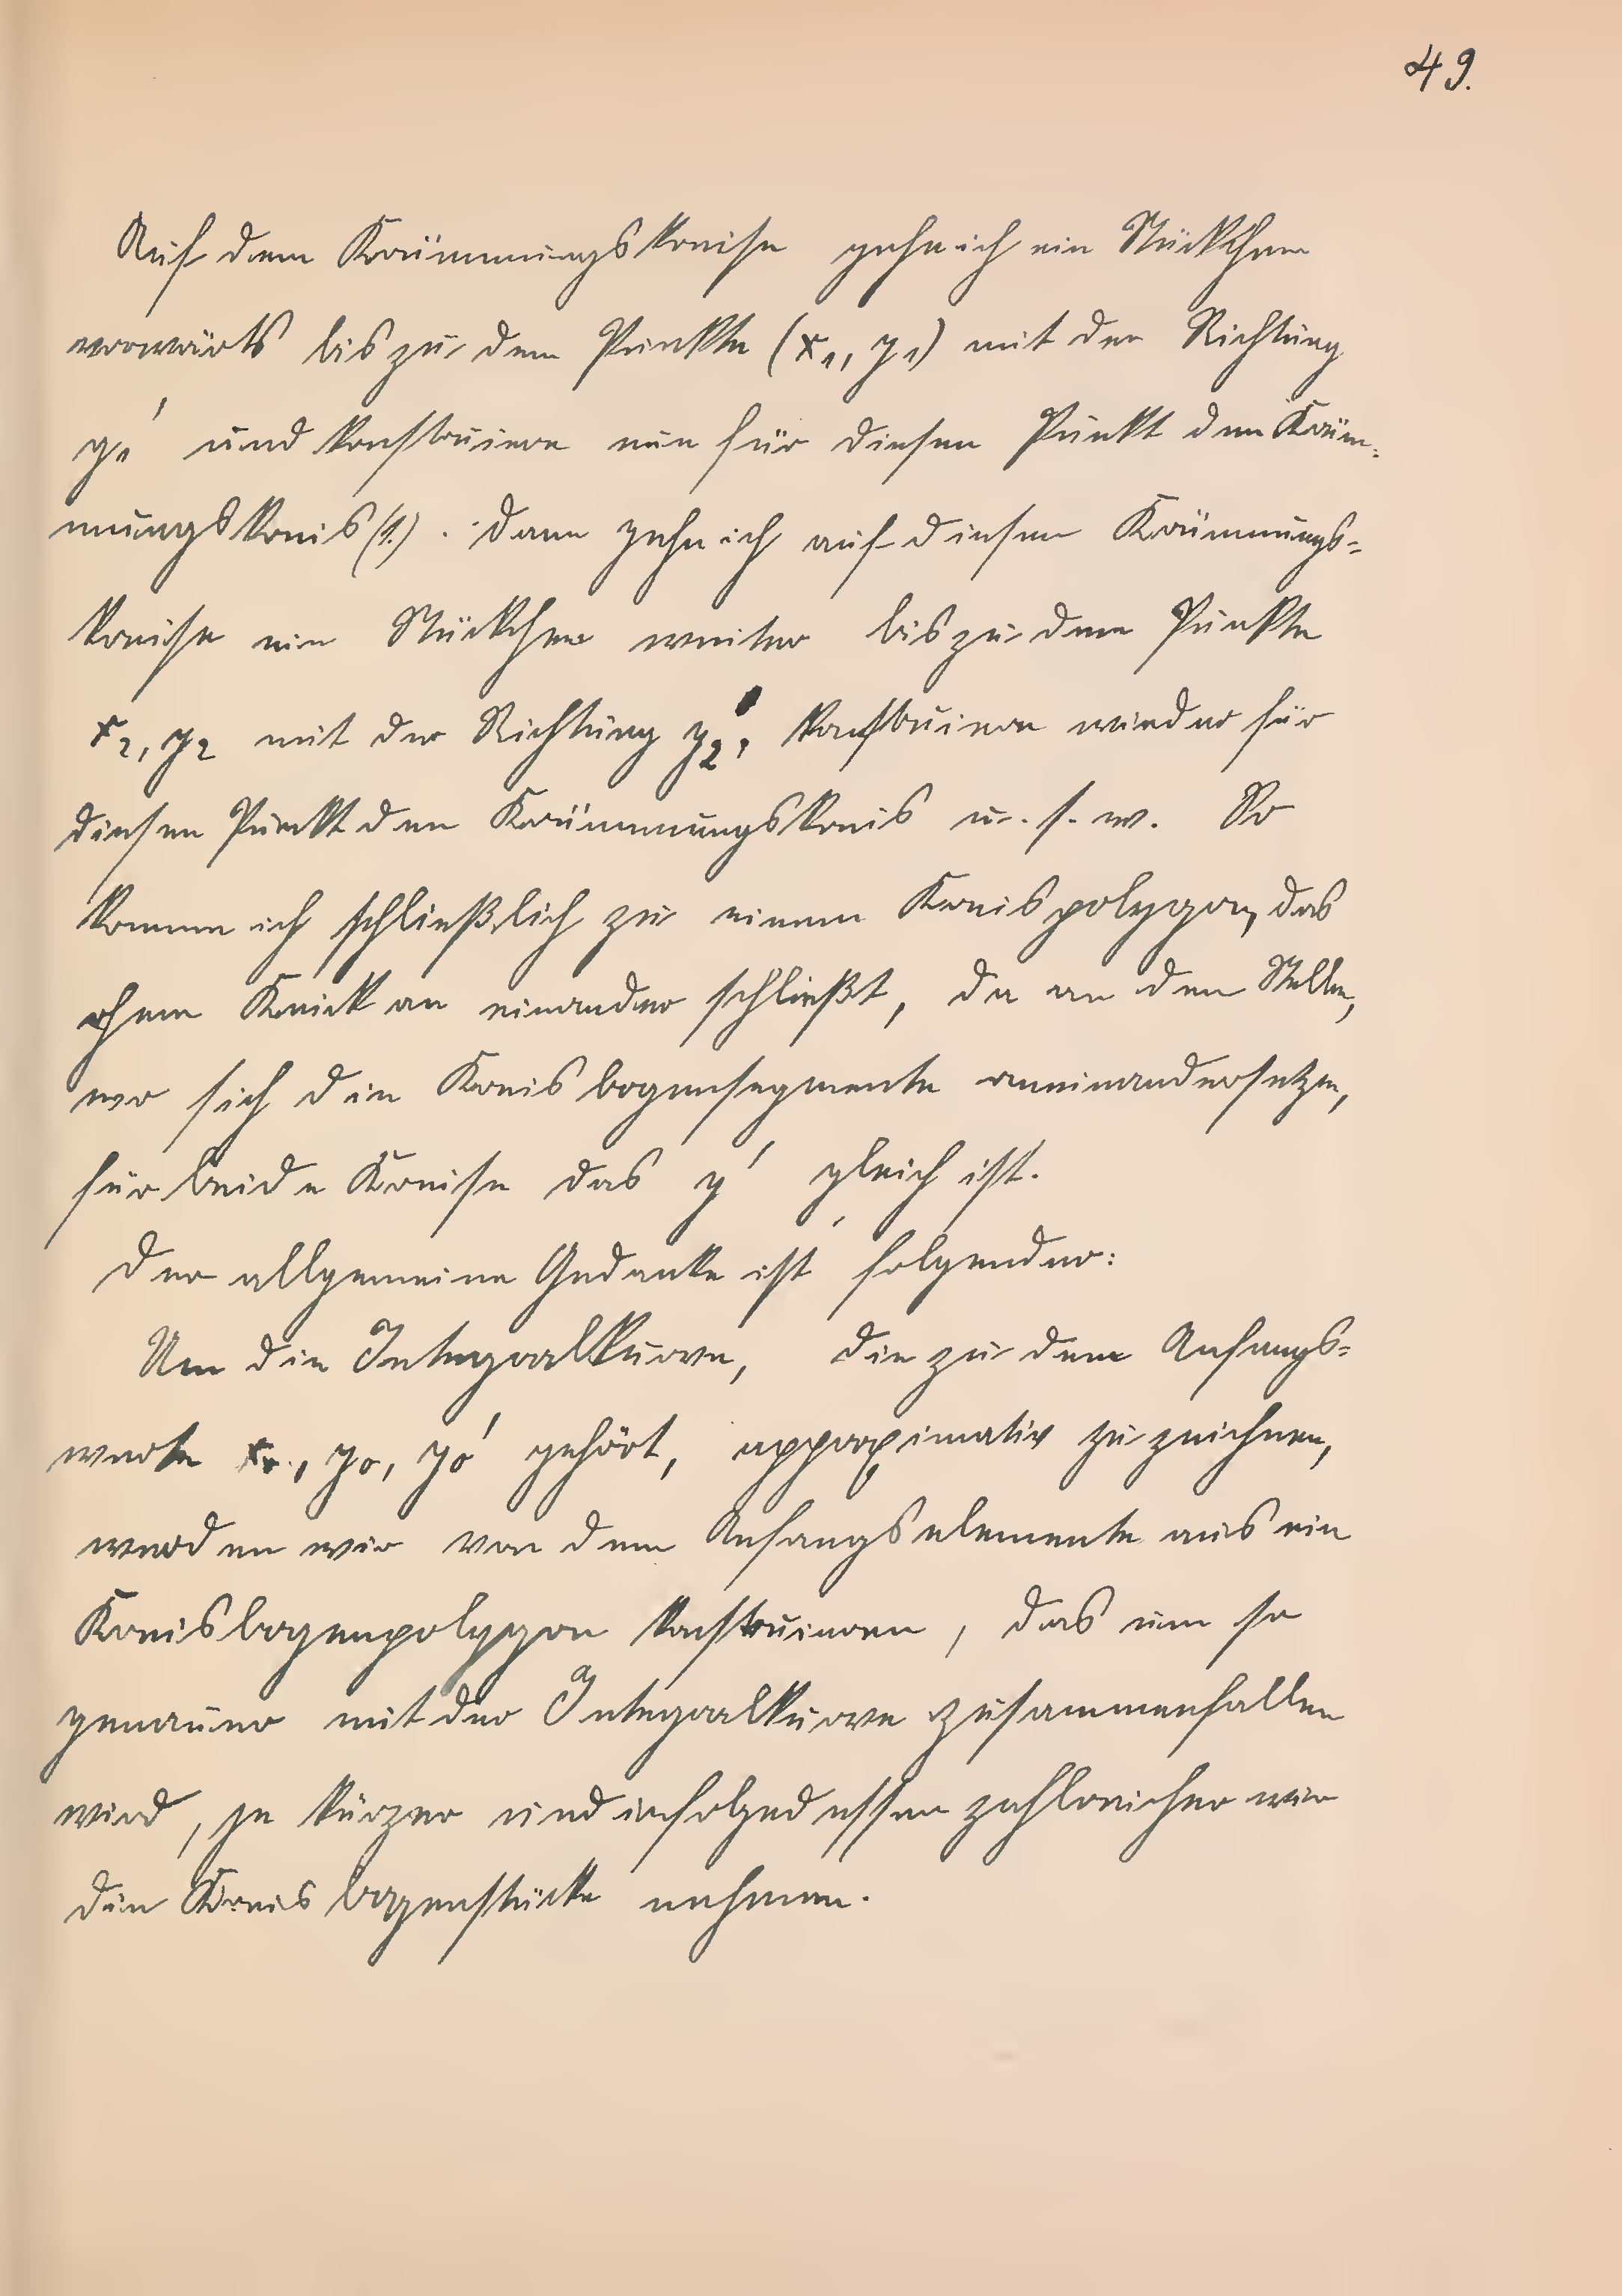 49.
Auf dem Krümmungskreise gehe ich ein Stückchen
vorwärts bis zu dem Punkte (x₁, y₁) mit der Richtung
y₁′ und konstruiere nun für diesen Punkt den Krüm-
mungskreis (1.). Dann gehe ich auf diesem Krümmungs-
kreise ein Stückchen weiter bis zu dem Punkte
x₂, y₂ mit der Richtung y₂′, konstruiere wieder für
diesen Punkt den Krümmungskreis u. s. w. So
komme ich schließlich zu einem Kreispolygon, das
ohne Knick an einander schließt, da an den Stellen,
wo sich die Kreisbogensegmente aneinandersetzen,
für beide Kreise das y′ gleich ist.
Der allgemeine Gedanke ist folgender:
Um die Integralkurve, die zu dem Anfangs-
werte x₀, y₀, y₀′ gehört, approximativ zu zeichnen,
werden wir von dem Anfangselemente aus ein
Kreisbogenpolygon konstruieren, das um so
genauer mit der Integralkurve zusammenfallen
wird, je kürzer und infolgedessen zahlreicher wir
die Kreisbogenstücke nehmen.